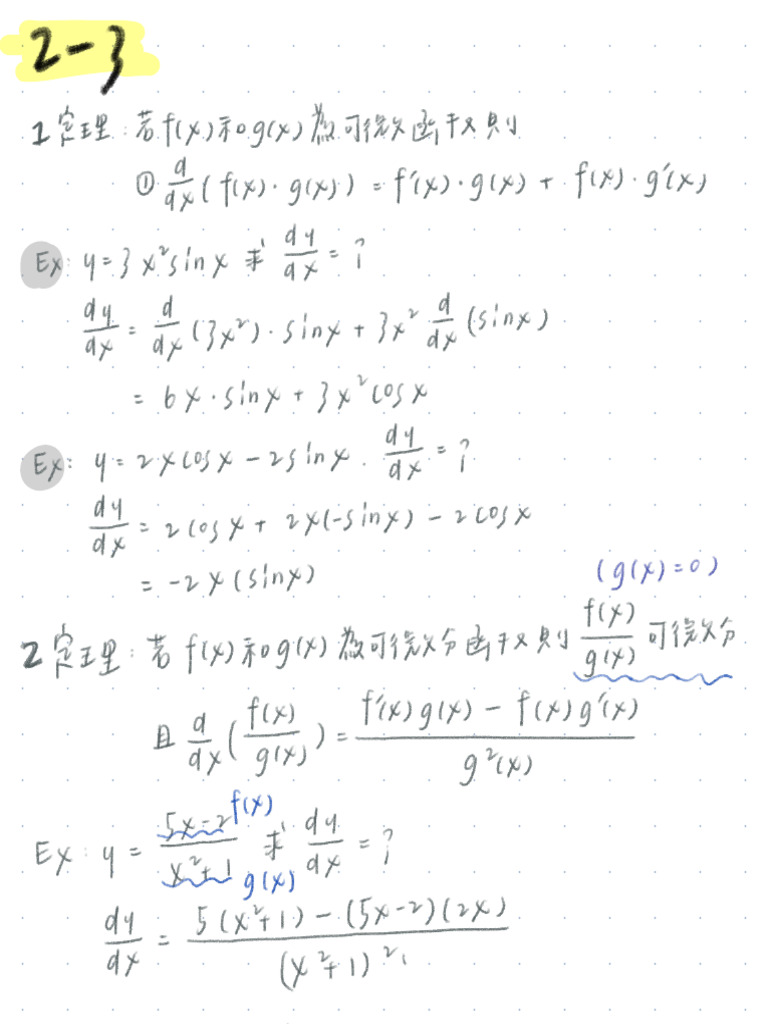 2-3
1 定理：若 f(x) 和 g(x) 為可微分函數則
① d/dx ( f(x) · g(x) ) = f'(x) · g(x) + f(x) · g'(x)
Ex: y = 3x² sin x 求 dy/dx = ?
dy/dx = d/dx (3x²) · sin x + 3x² d/dx (sin x)
= 6x · sin x + 3x² cos x
Ex: y = 2x cos x - 2 sin x . dy/dx = ?
dy/dx = 2 cos x + 2x(-sin x) - 2 cos x
= -2x (sin x)
(g(x) = 0)
2 定理：若 f(x) 和 g(x) 為可微分函數則 f(x)/g(x) 可微分
且 d/dx ( f(x)/g(x) ) = f'(x) g(x) - f(x) g'(x) / g²(x)
Ex: y = 5x-2 / x²+1 f(x) g(x) 求 dy/dx = ?
dy/dx = 5(x²+1) - (5x-2)(2x) / (x²+1)²